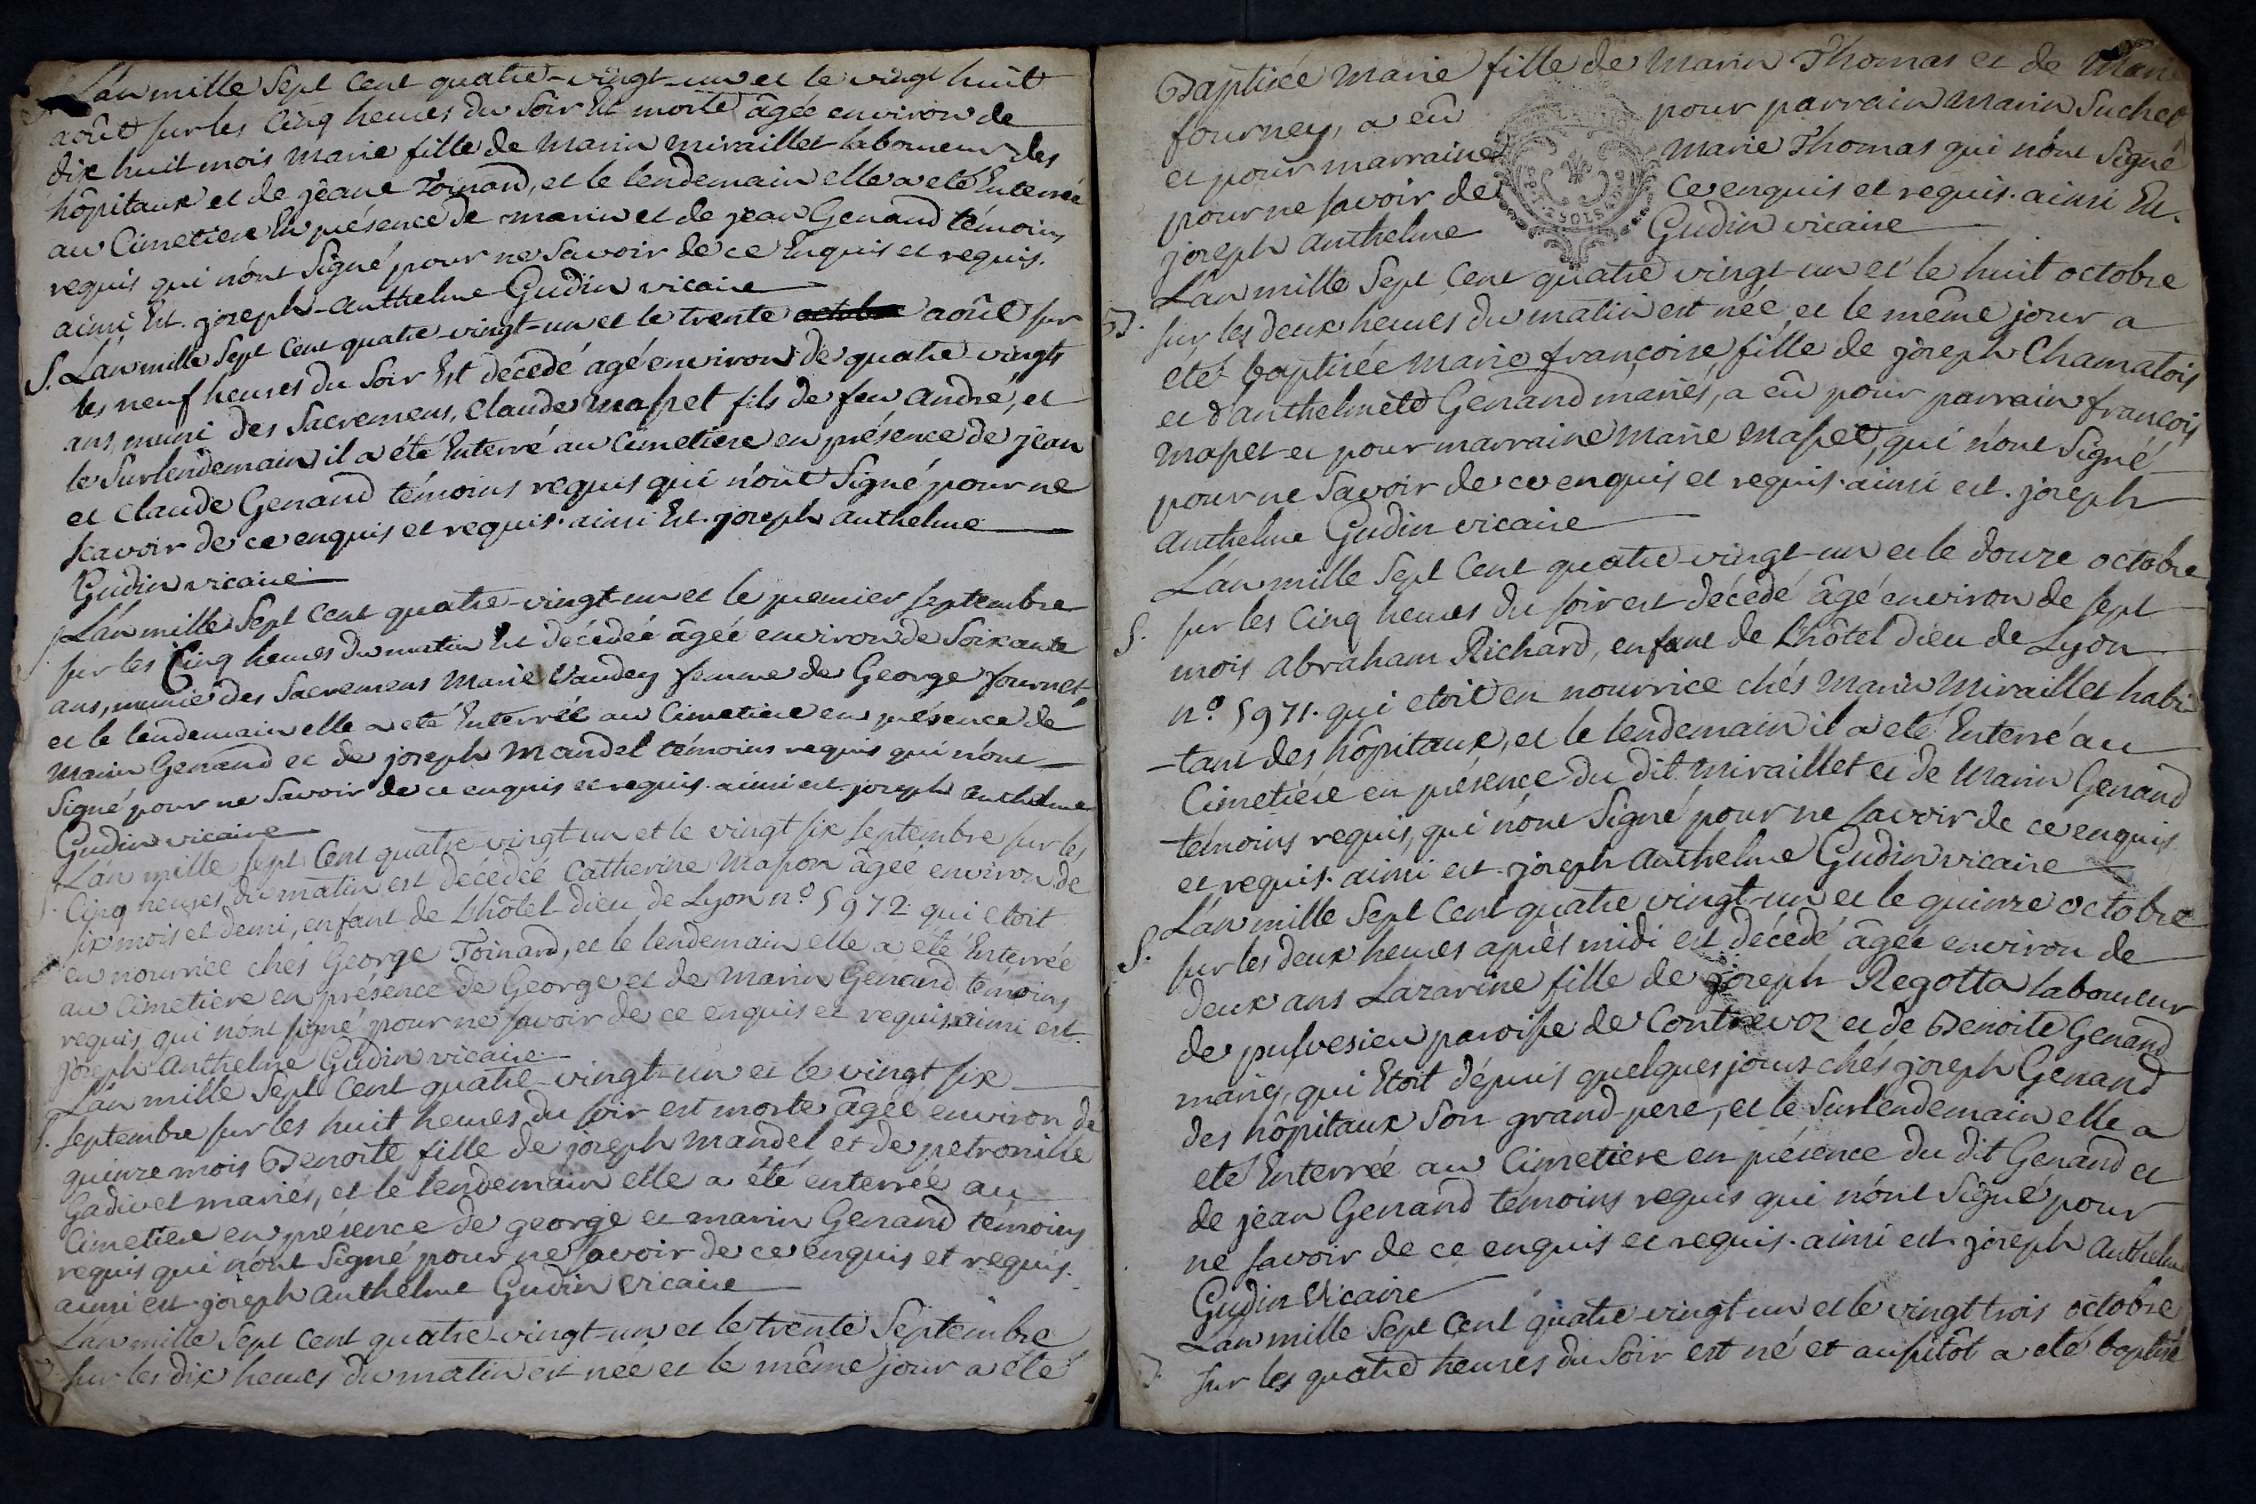 L'an mille Sept Cent quatre-vingt-un et le vingt huit
août sur les Cinq heures du Soir Est morte âgée environ de
dix huit mois marie fille de marin miraillet laboureur des
hôpitaux et de jeane Toinard, et le lendemain elle a eté Enterrée
au Cimetiere En présence de marin et de jean Genand témoins
requis qui n'ont Signé pour ne Savoir de ce Enquis et requis.
ainsi Est. joseph-anthelme Gudin vicaire
S. L'an mille Sept Cent quatre-vingt-un et le trente octobre août sur
les neuf heures du Soir Est décédé agé environ de quatre vingts
ans, muni des Sacremens, Claude maſſet fils de feu andré, et
le Surlendemain il a été Enterré au Cimetiere en présence de jean
et Claude Genand témoins requis qui n'ont Signé pour ne
scavoir de ce enquis et requis. ainsi Est. joseph anthelme
Gudin vicaire
L'an mille Sept Cent quatre-vingt-un et le premier septembre
sur les Cinq heures du matin Est décédée âgée environ de Soixante
ans, munie des Sacremens marie Vaudey femme de George fournet
et le lendemain elle a eté Enterrée au Cimetiere en présence de
marin Genand et de joseph mandel témoins requis qui n'ont
Signé pour ne Savoir de ce enquis et requis. ainsi est joseph anthelme
Gudin vicaire
L'an mille sept Cent quatre vingt-un et le vingt six septembre sur les
Cinq heures du matin est décédée Catherine Maſſon âgée environ de
six mois et demi, enfant de L'hôtel-dieu de Lyon n.º 5972. qui etoit
en nourrice chés George Toinard, et le lendemain elle a été Enterrée
au Cimetiere en présence de George et de marin Genand témoins
requis qui n'ont signé pour ne savoir de ce enquis et requis. ainsi est.
joseph Anthelme Gudin vicaire
L'an mille Sept Cent quatre-vingt-un et le vingt six
S. septembre sur les huit heures du soir est morte âgée environ de
quinze mois Benoite fille de joseph mandel et de petronille
Gadivet mariés, et le lendemain elle a été enterrée au
Cimetiere en présence de george et marin Genand témoins
requis qui n'ont Signé pour ne savoir de ce enquis et requis.
ainsi est. joseph anthelme Gudin vicaire
L'an mille Sept Cent quatre-vingt-un et le trente Septembre
sur les dix heures du matin est née et le même jour a été
Baptisée marie fille de marin Thomas et de Marie
fourney, a eû pour parrain marin Suchet
et pour marraine Marie Thomas qui n'ont Signé
pour ne savoir de Ce enquis et requis. ainsi Est.
joseph anthelme Gudin vicaire
L'an mille Sept Cent quatre vingt-un et le huit octobre
B. sur les deux heures du matin est née et le même jour a
été baptisée marie françoise, fille de joseph Chamatois
et d'anthelmete Genand mariés, a eû pour parrain françois
maſſet et pour marraine marie maſſet, qui n'ont Signé
pour ne Savoir de ce enquis et requis. ainsi est. joseph
anthelme Gudin vicaire
L'an mille Sept Cent quatre vingt-un et le douze octobre
S. sur les Cinq heures du soir est décédé âgé environ de sept
mois abraham Richard, enfant de L'hôtel dieu de Lyon
n.º 5971. qui etoit en nourrice chés Marin Miraillet habi
-tant des hôpitaux, et le lendemain il a été Enterré au
Cimetiére en présence du dit. miraillet et de Marin Genand
témoins requis, qui n'ont Signé pour ne savoir de ce enquis
et requis. ainsi est. joseph anthelme Gudin vicaire
L'an mille Sept Cent quatre vingt-un et le quinze octobre
S. sur les deux heures après midi est décédé âgée environ de
deux ans Lazarine fille de joseph Regotta laboureur
de pulvesieu paroiſſe de Contrevoz et de Benoite Genand
mariés, qui Etoit dépuis quelques jours chés joseph Genand
des hôpitaux Son grand-pere, et le Surlendemain elle a
eté Enterrée au Cimetiere en présence du dit Genand et
de jean Genand témoins requis qui n'ont Signé pour
ne savoir de ce enquis et requis. ainsi est. joseph anthelme
Gudin Vicaire
L'an mille Sept Cent quatre vingt-un et le vingt trois octobre
sur les quatre heures du Soir est né et auſſitôt a eté baptisé